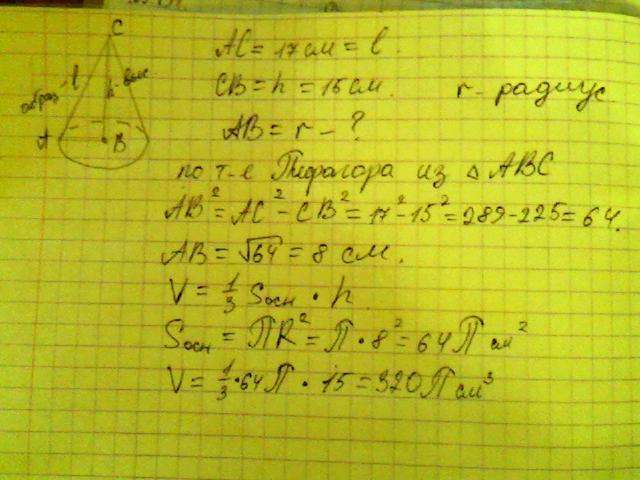 C
образ - l
h - выс
A
B
AC = 17 см = l.
CB = h = 15 см. r - радиус
AB = r - ?
по т-е Пифагора из △ ABC
AB² = AC² - CB² = 17² - 15² = 289 - 225 = 64.
AB = √64 = 8 см.
V = 1/3 Sосн · h.
Sосн = ПR² = П · 8² = 64П см²
V = 1/3 · 64П · 15 = 320П см³